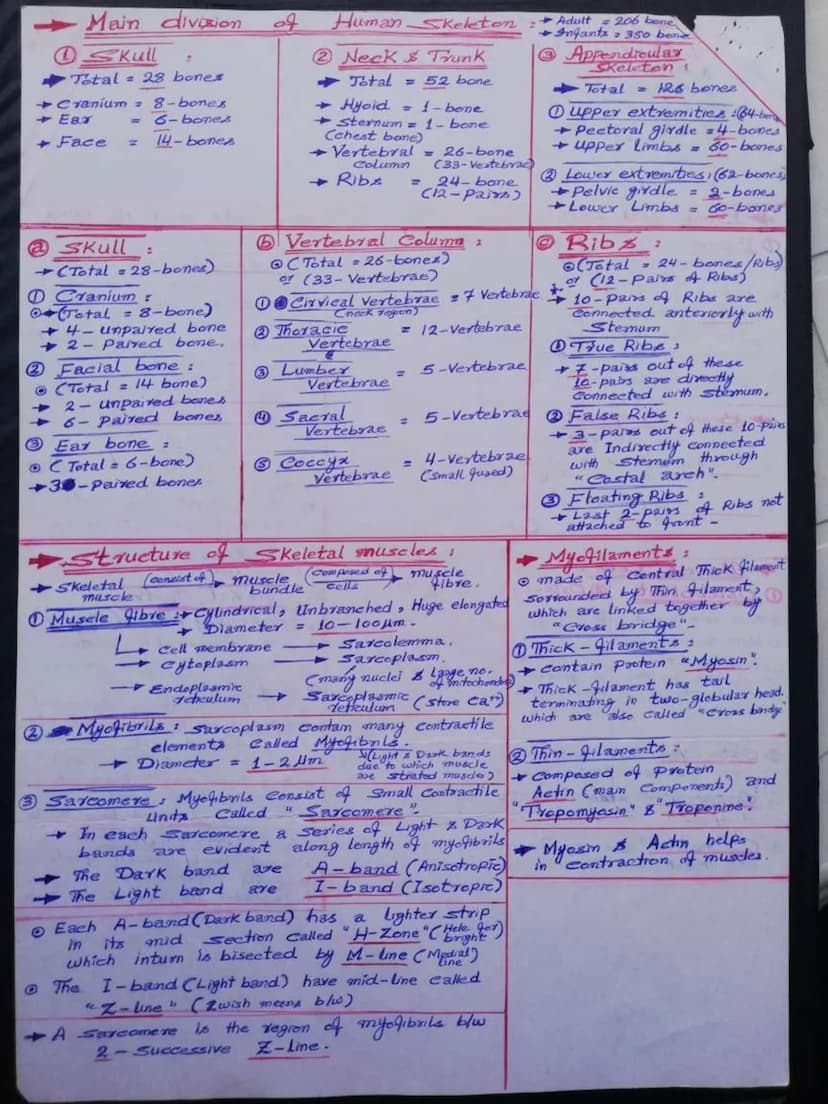 → Main division of Human Skeleton : → Adult = 206 bone
→ Infants = 350 bone
① Skull :
→ Total = 28 bones
→ Cranium = 8-bones
→ Ear = 6-bones
→ Face = 14-bones
② Neck & Trunk
→ Total = 52 bone
→ Hyoid = 1-bone
→ Sternum = 1-bone
(chest bone)
→ Vertebral = 26-bone
Column (33-Vertebrae)
→ Ribs = 24-bone
(12-Pairs)
③ Appendicular
Skeleton :
→ Total = 126 bones
① Upper extremities : (64-bone
→ Pectoral girdle = 4-bones
→ Upper Limbs = 60-bones
② Lower extremities : (62-bones)
→ Pelvic girdle = 2-bones
→ Lower Limbs = 60-bones
ⓐ Skull :
→ (Total = 28-bones)
① Cranium :
⊙→ (Total = 8-bone)
→ 4-unpaired bone
→ 2-Paired bone.
② Facial bone :
⊙ (Total = 14 bone)
→ 2-unpaired bones
→ 6-Paired bones
③ Ear bone :
⊙ (Total = 6-bone)
→ 3 -Paired bones
ⓑ Vertebral Column :
⊙ (Total = 26-bones)
or (33-Vertebrae)
① Cirvical Vertebrae = 7 Vertebrae
(neck region)
② Thoracic = 12-Vertebrae
Vertebrae
③ Lumber = 5-Vertebrae
Vertebrae
④ Sacral = 5-Vertebrae
Vertebrae
⑤ Coccyx = 4-Vertebrae
Vertebrae (small fused)
ⓒ Ribs :
⊙ (Total = 24-bones/Ribs)
or (12-Pairs of Ribs)
→ 10-Pairs of Ribs are
connected anteriorly with
Sternum
① True Ribs :
→ 7-pairs out of these
10-pairs are directly
connected with sternum.
② False Ribs :
→ 3-pairs out of these 10-pairs
are Indirectly connected
with Sternum through
"Costal arch".
③ Floating Ribs :
→ Last 2-pairs of Ribs not
attached to front -
→ Structure of Skeletal muscles :
→ Skeletal (consist of)→ muscle (composed of)→ muscle
muscle bundle cells fibre.
① Muscle fibre :→ Cylindrical, Unbranched, Huge elongated
→ Diameter = 10-100μm.
→ Cell membrane → Sarcolemma.
→ Cytoplasm → Sarcoplasm.
(many nuclei & Large no.
of mitochondria)
→ Endoplasmic → Sarcoplasmic
reticulum reticulum (store Ca⁺⁺)
② Myofibrils : Sarcoplasm contain many contractile
elements called Myofibrils.
→ Diameter = 1-2μm (Light & Dark bands
due to which muscle
are strated muscles)
③ Sarcomere : Myofibrils consist of Small contractile
Units called "Sarcomere".
→ In each Sarcomere a series of Light & Dark
bands are evident along length of myofibrils
→ The Dark band are A-band (Anisotropic)
→ The Light band are I-band (Isotropic)
⊙ Each A-band (Dark band) has a lighter strip
in its mid section called "H-Zone" (Hele for
bright)
which inturn is bisected by M-line (Medial
line)
⊙ The I-band (Light band) have mid-line called
"Z-line" (Zwish means b/w)
→ A sarcomere is the region of myofibrils b/w
2-Successive Z-line.
→ Myofilaments :
⊙ made of Central Thick filament
sorrounded by Thin filament,
which are linked together by
"Cross bridge"-
① Thick-filaments :
→ contain protein "Myosin".
→ Thick-filament has tail
terminating in two-globular head.
which are also called "Cross bridge"
② Thin-filaments :
→ composed of protein
Actin (main components) and
"Tropomyosin" & "Troponine".
→ Myosin & Actin helps
in contraction of muscles.